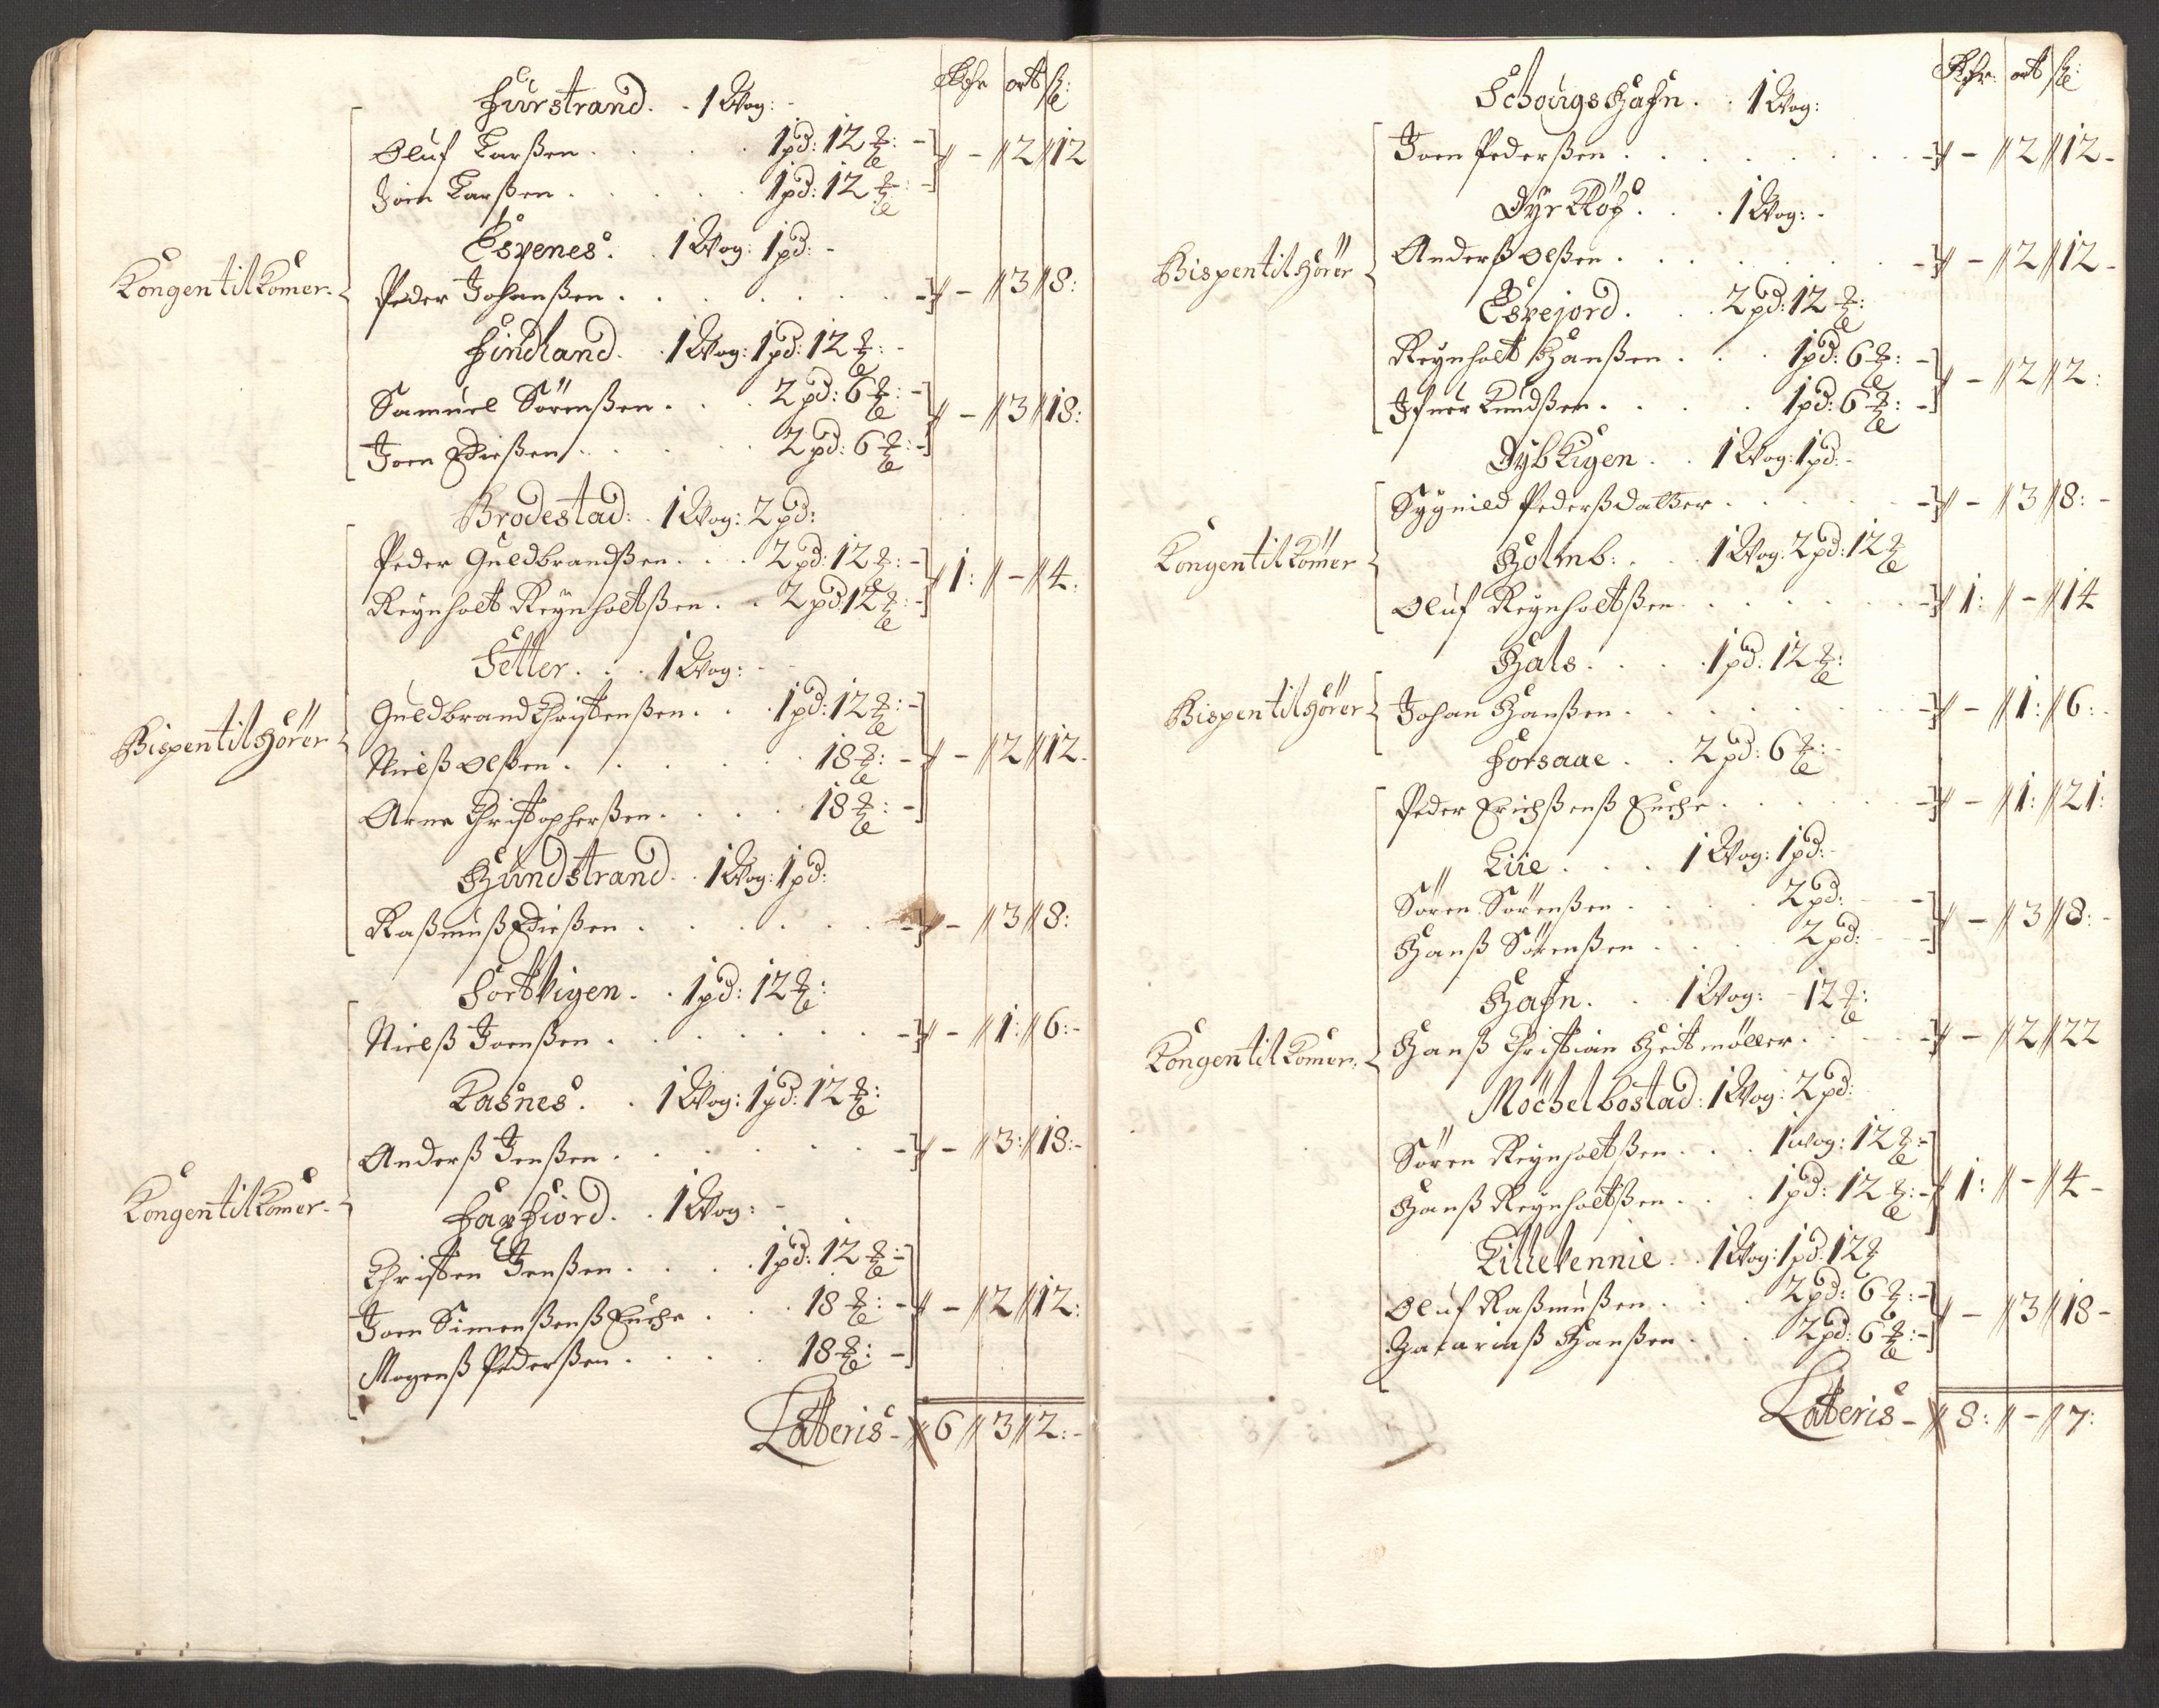 Rdr ort ß:
Furstrand. - 1 Wog: -
Oluf Larßen . . . . 1 pd: 12 ℔: - - 2 12
Joen Larßen . . . . 1 pd: 12 ℔: -
Espenes. . 1 Wog: 1 pd: -
Kongen tilkomer.
Peder Johanßen . . . . . . - 3 8:
Findland. . 1 Wog: 1 pd: 12 ℔: -
Samuel Sörenßen . . . 2 pd: 6 ℔: - - 3 18:
Joen Edisßen . . . . 2 pd: 6 ℔: -
Brodestad: . 1 Wog: 2 pd:
Peder Guldbrandßen . . . 2 pd: 12 ℔: - 1: - 4.
Reynholt Reynholtßen . . 2 pd 12 ℔: -
Setter. . . 1 Wog: -
Guldbrand Christenßen . . . 1 pd: 12 ℔: -
Bispen tilhörer
Nielß Olßen . . . . . 18 ℔: - - 2 12.
Arne Christopherßen . . . . 18 ℔: -
Hundstrand. . 1 Wog: 1 pd:
Raßmuß Edisßen . . . . . . - 3 8:
Fortvigen. . 1 pd: 12 ℔:
Nielß Joenßen . . . . . . - 1: 6: -
Kasnes. . 1 Wog: 1 pd: 12 ℔:
Anderß Jenßen . . . . . . - 3: 18: -
Kongen tilkomer.
Farfiord. . 1 Wog: -
Christen Jenßen . . . . 1 pd: 12 ℔: -
Joen Simenßenß Enche . . 18 ℔: - - 2 12:
Mogenß Pederßen . . . . 18 ℔: -
Lateris - 6 3 2: -
Rdr: ort ß:
Schougs Hafn. . 1 Wog:
Joen Pederßen . . . . . . . - 2 12 -
Dyr Klöf. . . 1 Wog: -
Bispen tilhörer
Anderß Olßen . . . . . . . - 2 12 -
Espejord. . . 2 pd: 12 ℔:
Reynholt Hanßen . . . 1 pd: 6 ℔: - - 2 2:
Ifuer Knudßen . . . . 1 pd: 6 ℔: -
Dybvigen. . 1 Wog: 1 pd: -
Sygnild Pederßdatter . . . . . - 3 8: -
Kongen tilkomer
Holmb: . . 1 Wog: 2 pd: 12 ℔
Oluf Reynholtßen . . . . . . 1: - 14
Hals. . . . 1 pd: 12 ℔:
Bispen tilhörer
Johan Hanßen . . . . . . . - 1: 6: -
Forsaae. . . 2 pd: 6 ℔: -
Peder Erichßenß Enche . . . . . - 1: 21:
Liie. . . . 1 Wog: 1 pd: -
Sören Sörenßen . . . . 2 pd: - - 3 8: -
Hanß Sörenßen . . . . 2 pd: -
Hafn. . . 1 Wog: - 12 ℔:
Kongen tilkomer.
Hanß Christian Heitmöller . . . - 2 22
Möchelbostad: 1 Wog: 2 pd:
Sören Reynholtßen . . . 1 wog: 12 ℔: - 1: - 4 -
Hanß Reynholtßen . . . 1 pd: 12 ℔: -
Lilletennie. . 1 Wog: 1 pd: 12 ℔
Oluf Raßmußen . . . 2 pd: 6 ℔: - - 3 18 -
Zacariaß Hanßen . . 2 pd: 6 ℔: -
Lateris - 8: - 7: